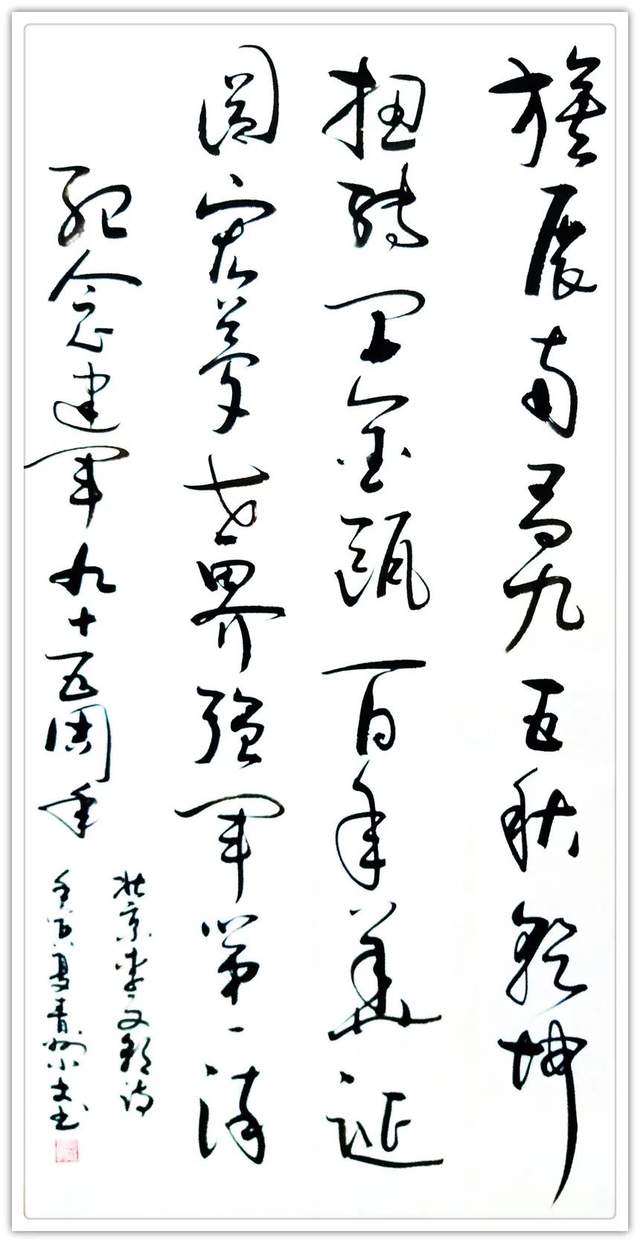 旗展南昌九五秋乾坤
扭转固金瓯百年华诞
圆宏梦世界强军第一流
纪念建军九十五周年
北京李文朝诗
壬寅夏青州书